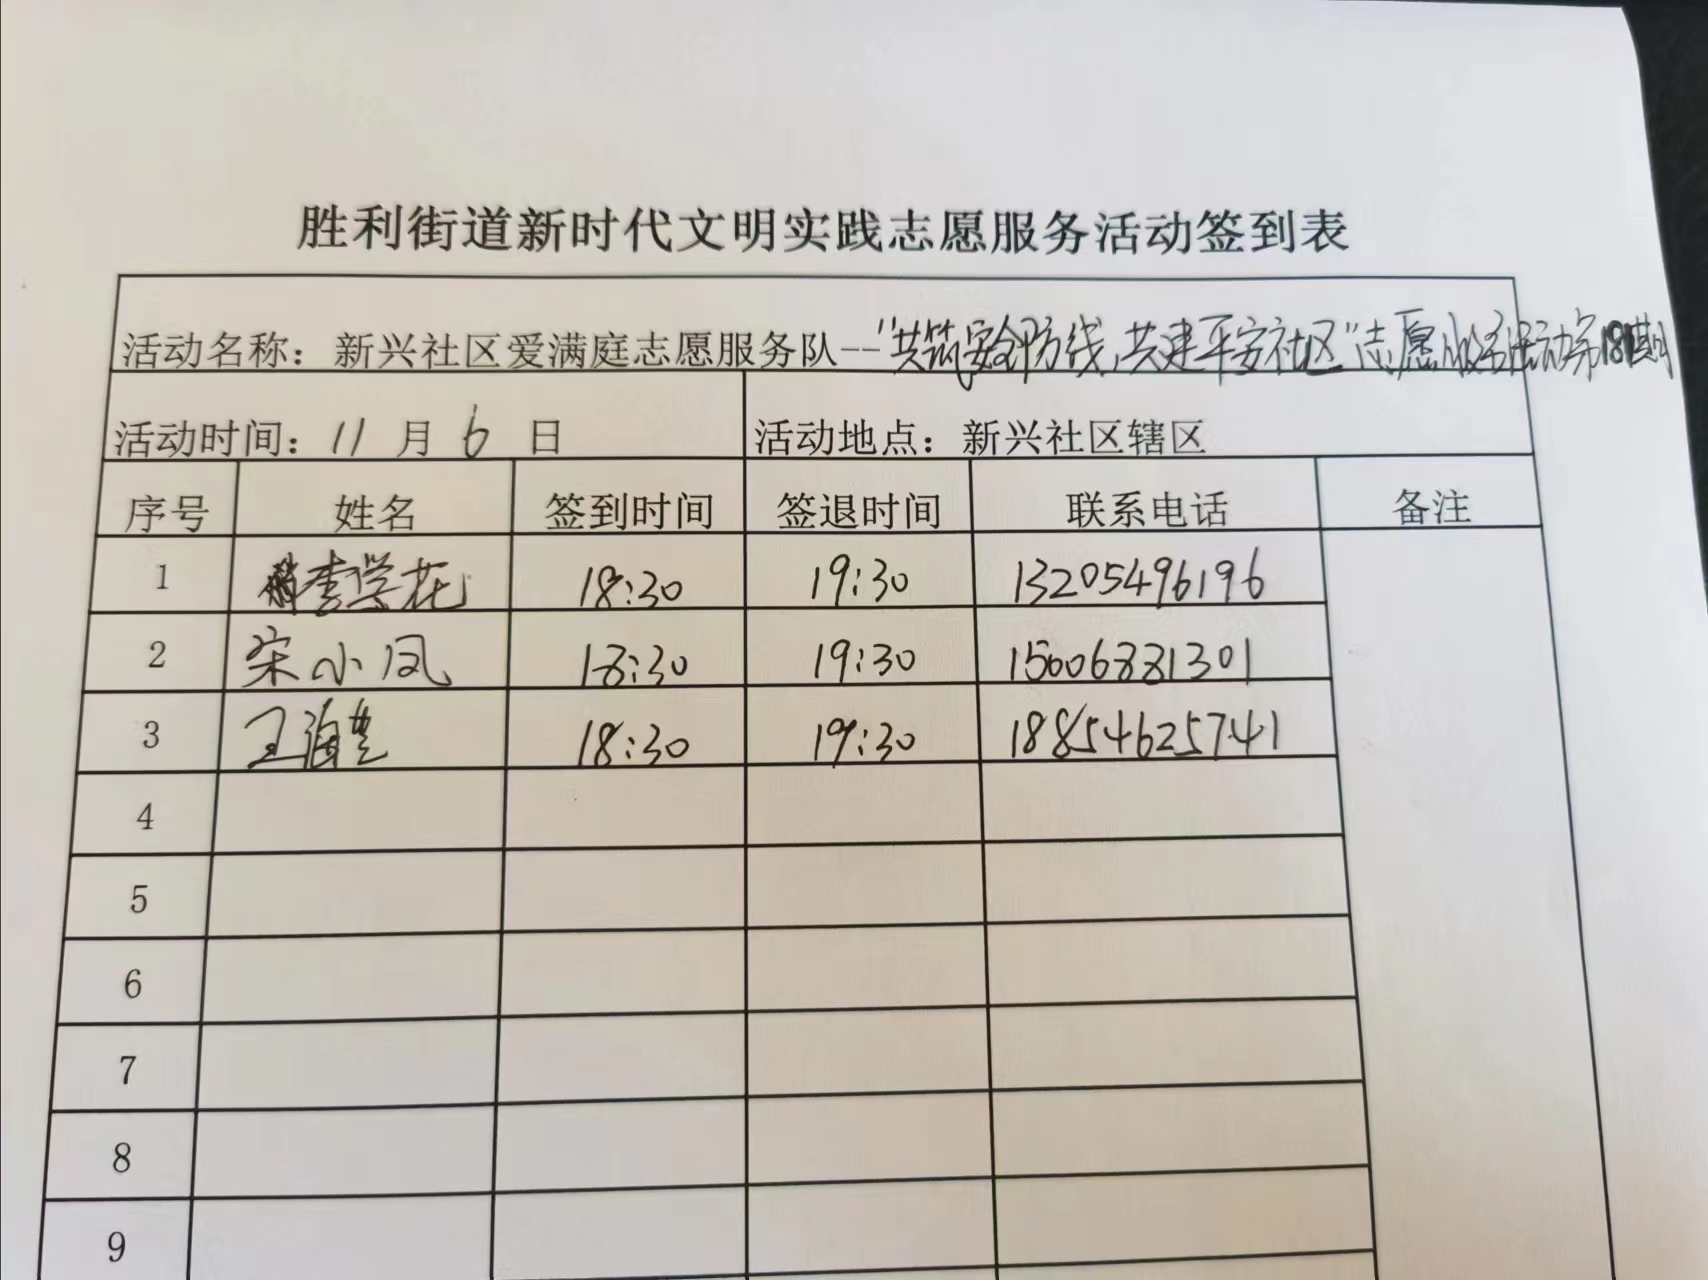 胜利街道新时代文明实践志愿服务活动签到表
活动名称：新兴社区爱满庭志愿服务队--“共筑安全防线，共建平安社区”志愿服务活动第181期
活动时间：11月6日 活动地点：新兴社区辖区
序号 姓名 签到时间 签退时间 联系电话 备注
1 李学花 18:30 19:30 13205496196
2 宋小凤 18:30 19:30 15006881301
3 王海 18:30 19:30 18854625741
4
5
6
7
8
9